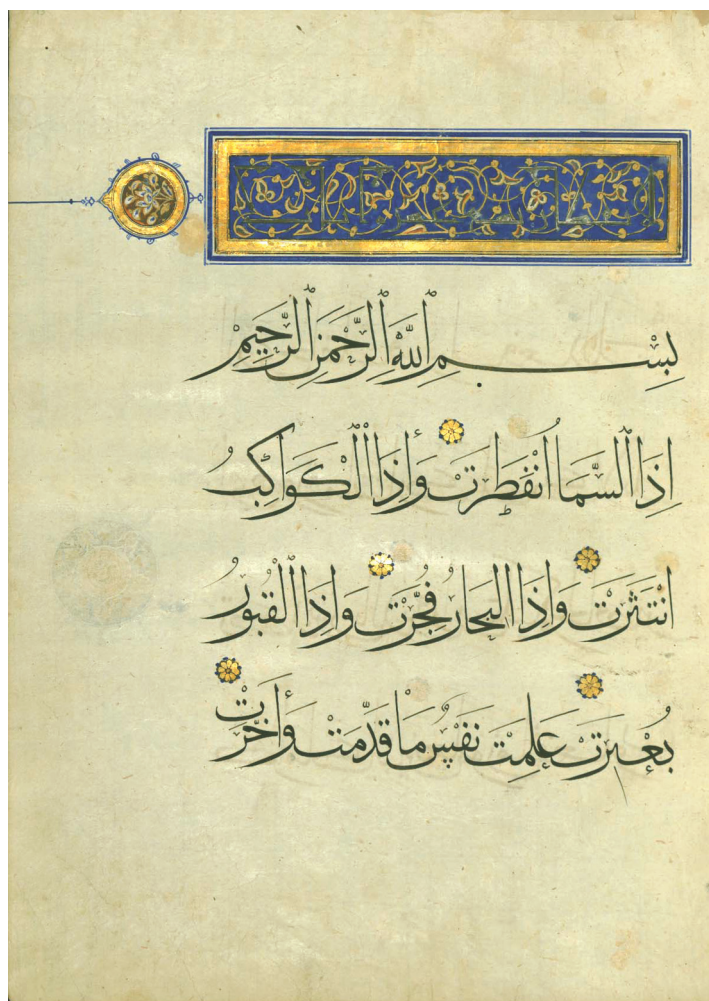 بِسْمِ اللَّهِ الرَّحْمَنِ الرَّحِيمِ
اِذَا السَّمَا انْفَطَرَتْ وَأِذَا الْكَوَاكِبُ
انْتَثَرَتْ وَاِذَا الْبِحَارُ فُجِّرَتْ وَاِذَا الْقُبُورُ
بُعْثِرَتْ عَلِمَتْ نَفْسٌ مَا قَدَّمَتْ وَأَخَّرَتْ